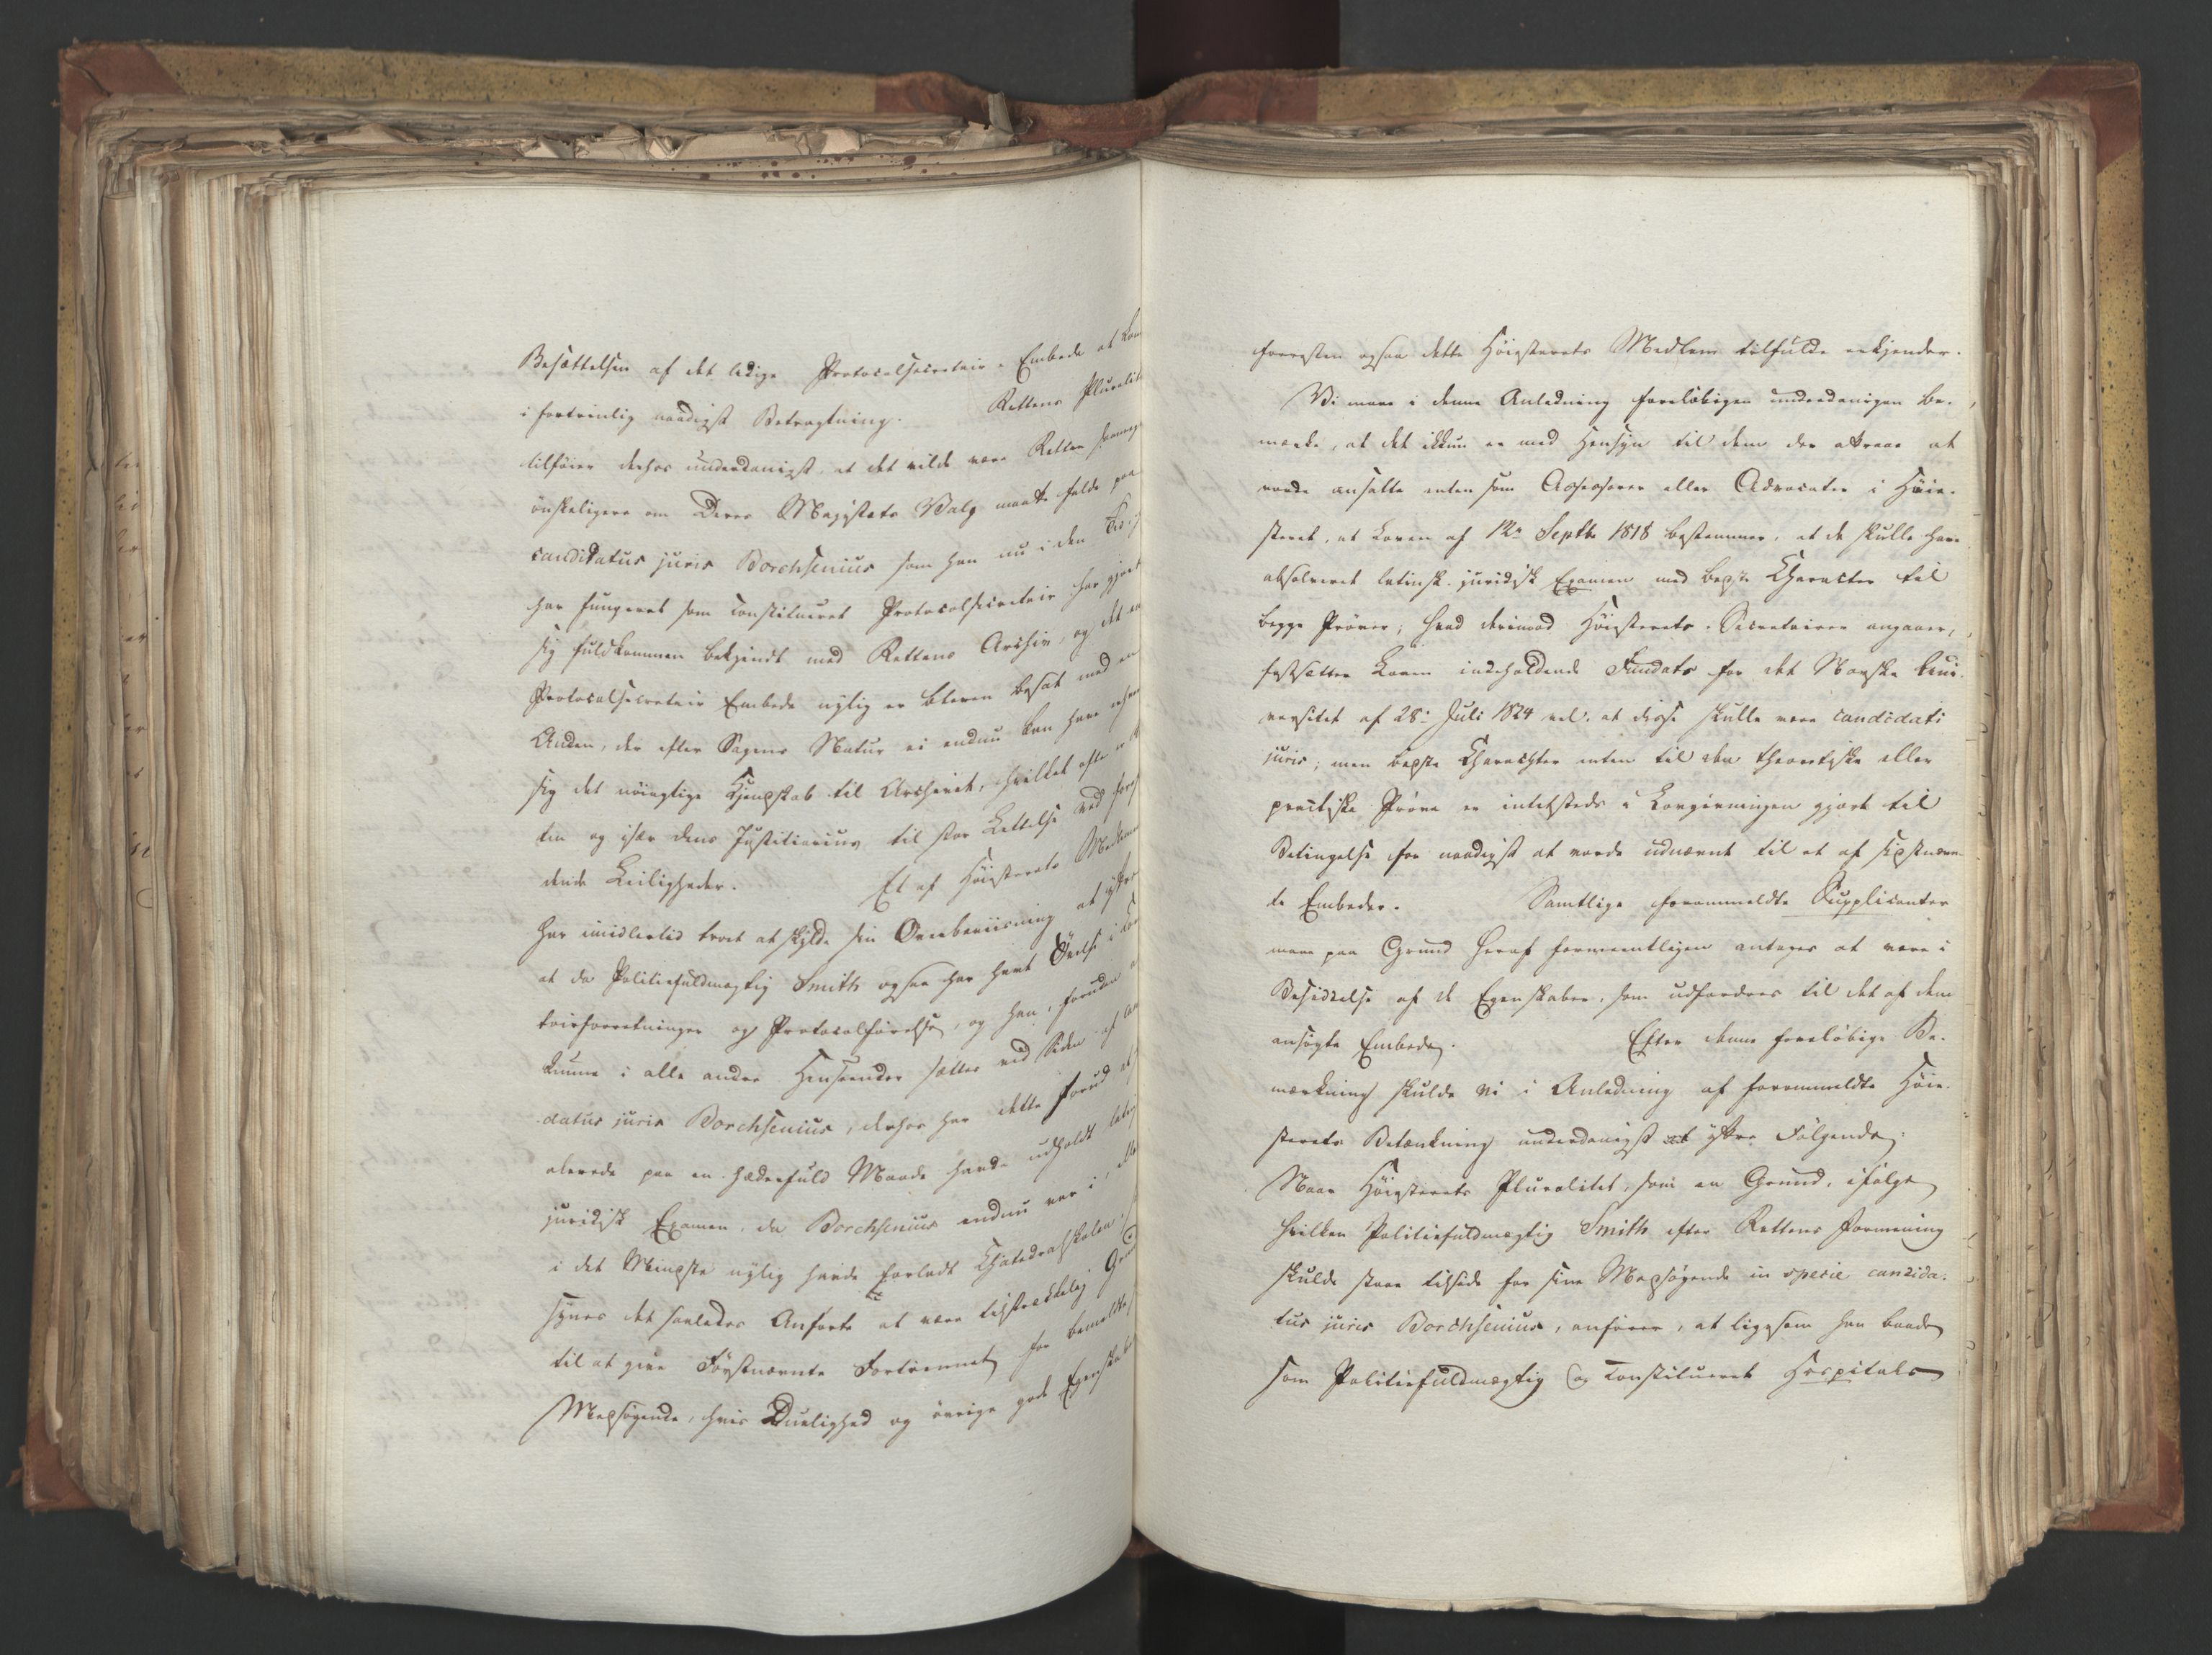 Besættelsen af det ledige Protocolsecretair-Embede at kom
i fortrinlig naadigst Betragtning. Rettens Pluralite
tilföier derhos underdanigst, at det vilde være Retten saameget
önskeligere om Deres Majestæts Valg maatte falde paa
candidatus juris Borchsenius som han nu i den Tid
har fungeret som constitueret Protocolsecretair har gjort
sig fuldkommen bekjendt med Rettens Archiv, og det er
Protocolsecretair Embede nylig er bleven besat med en
Anden, der efter Sagens Natur ei endnu kan have erhver
sig det nöiagtige Kjendskab til Archivet, hvilket ofte er
ten og især dens Justitiarius til stor Lettelse ved fore
dende Leiligheder. Et af Höiesterets Medlemmer
har imidlertid troet at skylde sin Overbeviisning at yttre
at da Politiefuldmægtig Smith ogsaa har havt Övelse i
tairforretninger og Protocolförelse, og han, foruden
kunne i alle andre Henseender sættes ved Siden af can
datus juris Borchsenius, derhos har dette forud at
allerede paa en hæderfuld Maade havde udholdt latin
juridisk Examen, da Borchsenius endnu var i, eller
i det Mindste nylig havde forladt Chatedralskolen,
synes det saaledes Anförte at være tilstrækkelig Grund
til at give Förstnævnte Fortrinnet for bemeldte
Medsögende, hvis Duelighed og övrige gode Egenskaber
forresten ogsaa dette Höiesterets Medlem tilfulde erkjender.
Vi maae i denne Anledning foreløbigen underdanigen be-
mærke, at det ikkun er med Hensyn til dem der attraae at
vorde ansatte enten som Assessorer eller Advocater i Höie-
steret, at Loven af 12te Septbr 1818 bestemmer, at de skulle have
absolveret latinsk juridisk Examen med bedste Character til
begge Pröver; hvad derimod Höiesterets-Secretairer angaaer,
fastsætter Loven indeholdende Fundats for det Norske Uni-
versitet af 28de Juli 1824 vel, at disse skulle være candidati
juris; men bedste Charachter enten til den theoretiske eller
practiske Pröve er intetsteds i Lovgivningen gjort til
Betingelse for naadigst at vorde udnævnt til et af sidstnævn-
te Embeder. Samtlige forommeldte Supplicanter
maae paa Grund heraf formeentligen antages at være i
Besiddelse af de Egenskaber, som udfordres til det af dem
ansögte Embede. Efter denne foreløbige Be-
mærkning skulde vi i Anledning af forommeldte Höie-
sterets Betænkning underdanigst at yttre Fölgende:
Naar Höiesterets Pluralitet, som en Grund, ifölge
hvilken Politiefuldmægtig Smith efter Rettens Formening
skulde staae tilside for sine Medsögende in specie candida-
tus juris Borchsenius, anfører, at ligesom han baade
som Politiefuldmægtig og constitueret Hospitals